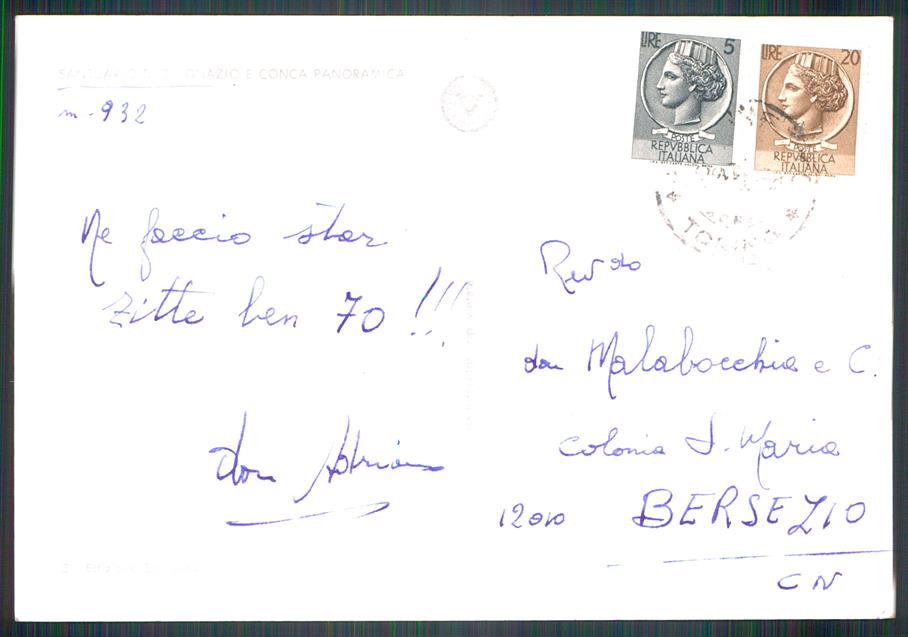 SANTUARIO S. IGNAZIO E CONCA PANORAMICA
m. 932
Ne faccio star
zitte ben 70 !!!
don Adriano
LIRE 5
POSTE
REPVBBLICA
ITALIANA
LIRE 20
POSTE
REPVBBLICA
ITALIANA
TORINO
Rev do
don Malabocchia e C.
Colonia S. Maria
12010 BERSEZIO
CN